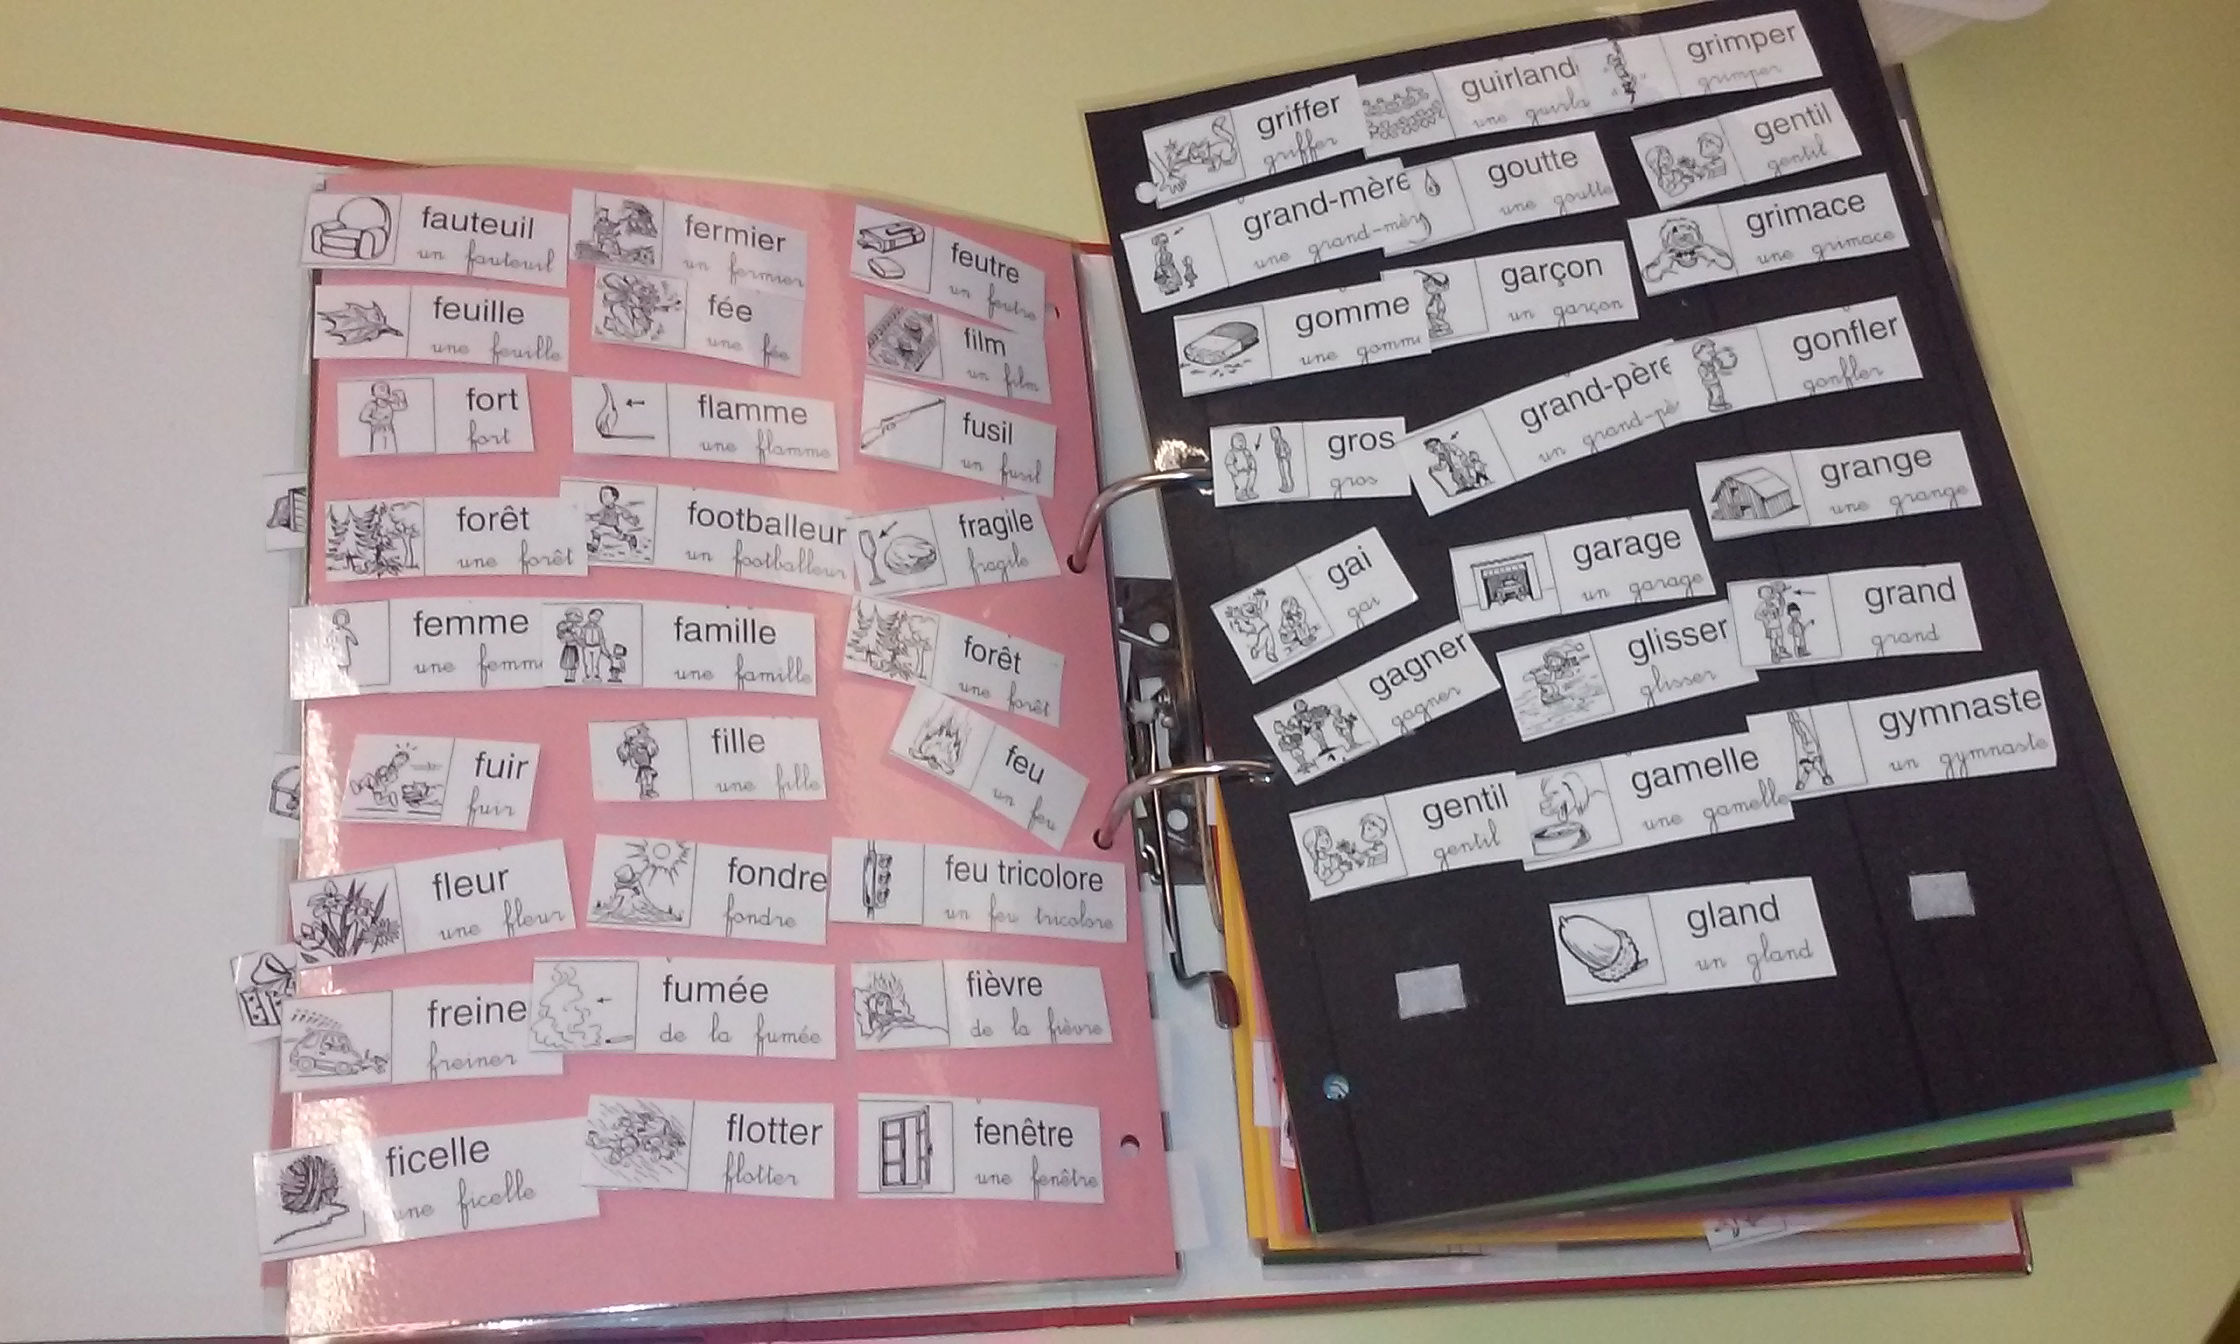 fauteuil
un fauteuil
fermier
un fermier
feutre
un feutre
feuille
une feuille
fée
une fée
film
un film
fort
fort
flamme
une flamme
fusil
un fusil
forêt
une forêt
footballeur
un footballeur
fragile
fragile
femme
une femm
famille
une famille
forêt
une forêt
fuir
fuir
fille
une fille
feu
un feu
fleur
une fleur
fondre
fondre
feu tricolore
un feu tricolore
freine
freiner
fumée
de la fumée
fièvre
de la fièvre
ficelle
une ficelle
flotter
flotter
fenêtre
une fenêtre
griffer
griffer
guirland
une guirla
grimper
grimper
grand-mère
une grand-mère
goutte
une goutte
gentil
gentil
gomme
une gomm
garçon
un garçon
grimace
une grimace
gros
gros
grand-père
un grand-pè
gonfler
gonfler
gai
gai
garage
un garage
grange
une grange
gagner
gagner
glisser
glisser
grand
grand
gentil
gentil
gamelle
une gamelle
gymnaste
un gymnaste
gland
un gland